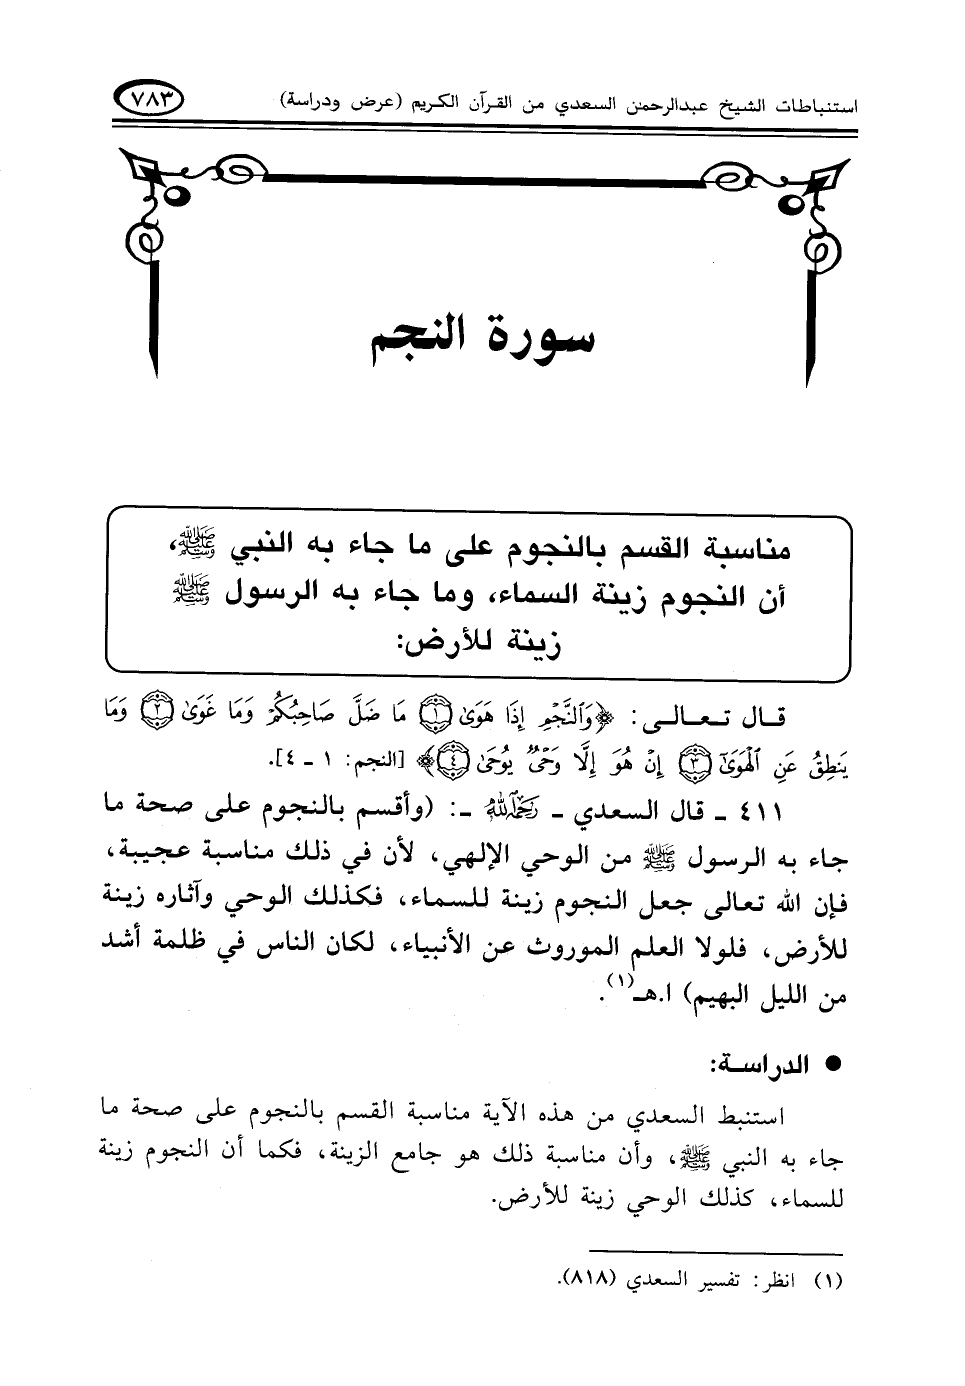 استنباطات الشيخ عبدالرحمن السعدي من القرآن الكريم (عرض ودراسة)
٧٨٣
سورة النجم
مناسبة القسم بالنجوم على ما جاء به النبي ﷺ،
أن النجوم زينة السماء، وما جاء به الرسول ﷺ
زينة للأرض:
قال تعالى: ﴿وَٱلنَّجْمِ إِذَا هَوَىٰ ۝١ مَا ضَلَّ صَاحِبُكُمْ وَمَا غَوَىٰ ۝٢ وَمَا
يَنطِقُ عَنِ ٱلْهَوَىٰٓ ۝٣ إِنْ هُوَ إِلَّا وَحْىٌ يُوحَىٰ ۝٤﴾ [النجم: ١ - ٤].
٤١١ - قال السعدي - رَحِمَهُ اللهُ -: (وأقسم بالنجوم على صحة ما
جاء به الرسول ﷺ من الوحي الإلهي، لأن في ذلك مناسبة عجيبة،
فإن الله تعالى جعل النجوم زينة للسماء، فكذلك الوحي وآثاره زينة
للأرض، فلولا العلم الموروث عن الأنبياء، لكان الناس في ظلمة أشد
من الليل البهيم) ا.هـ(١).
● الدراسة:
استنبط السعدي من هذه الآية مناسبة القسم بالنجوم على صحة ما
جاء به النبي ﷺ، وأن مناسبة ذلك هو جامع الزينة، فكما أن النجوم زينة
للسماء، كذلك الوحي زينة للأرض.
(١) انظر: تفسير السعدي (٨١٨).